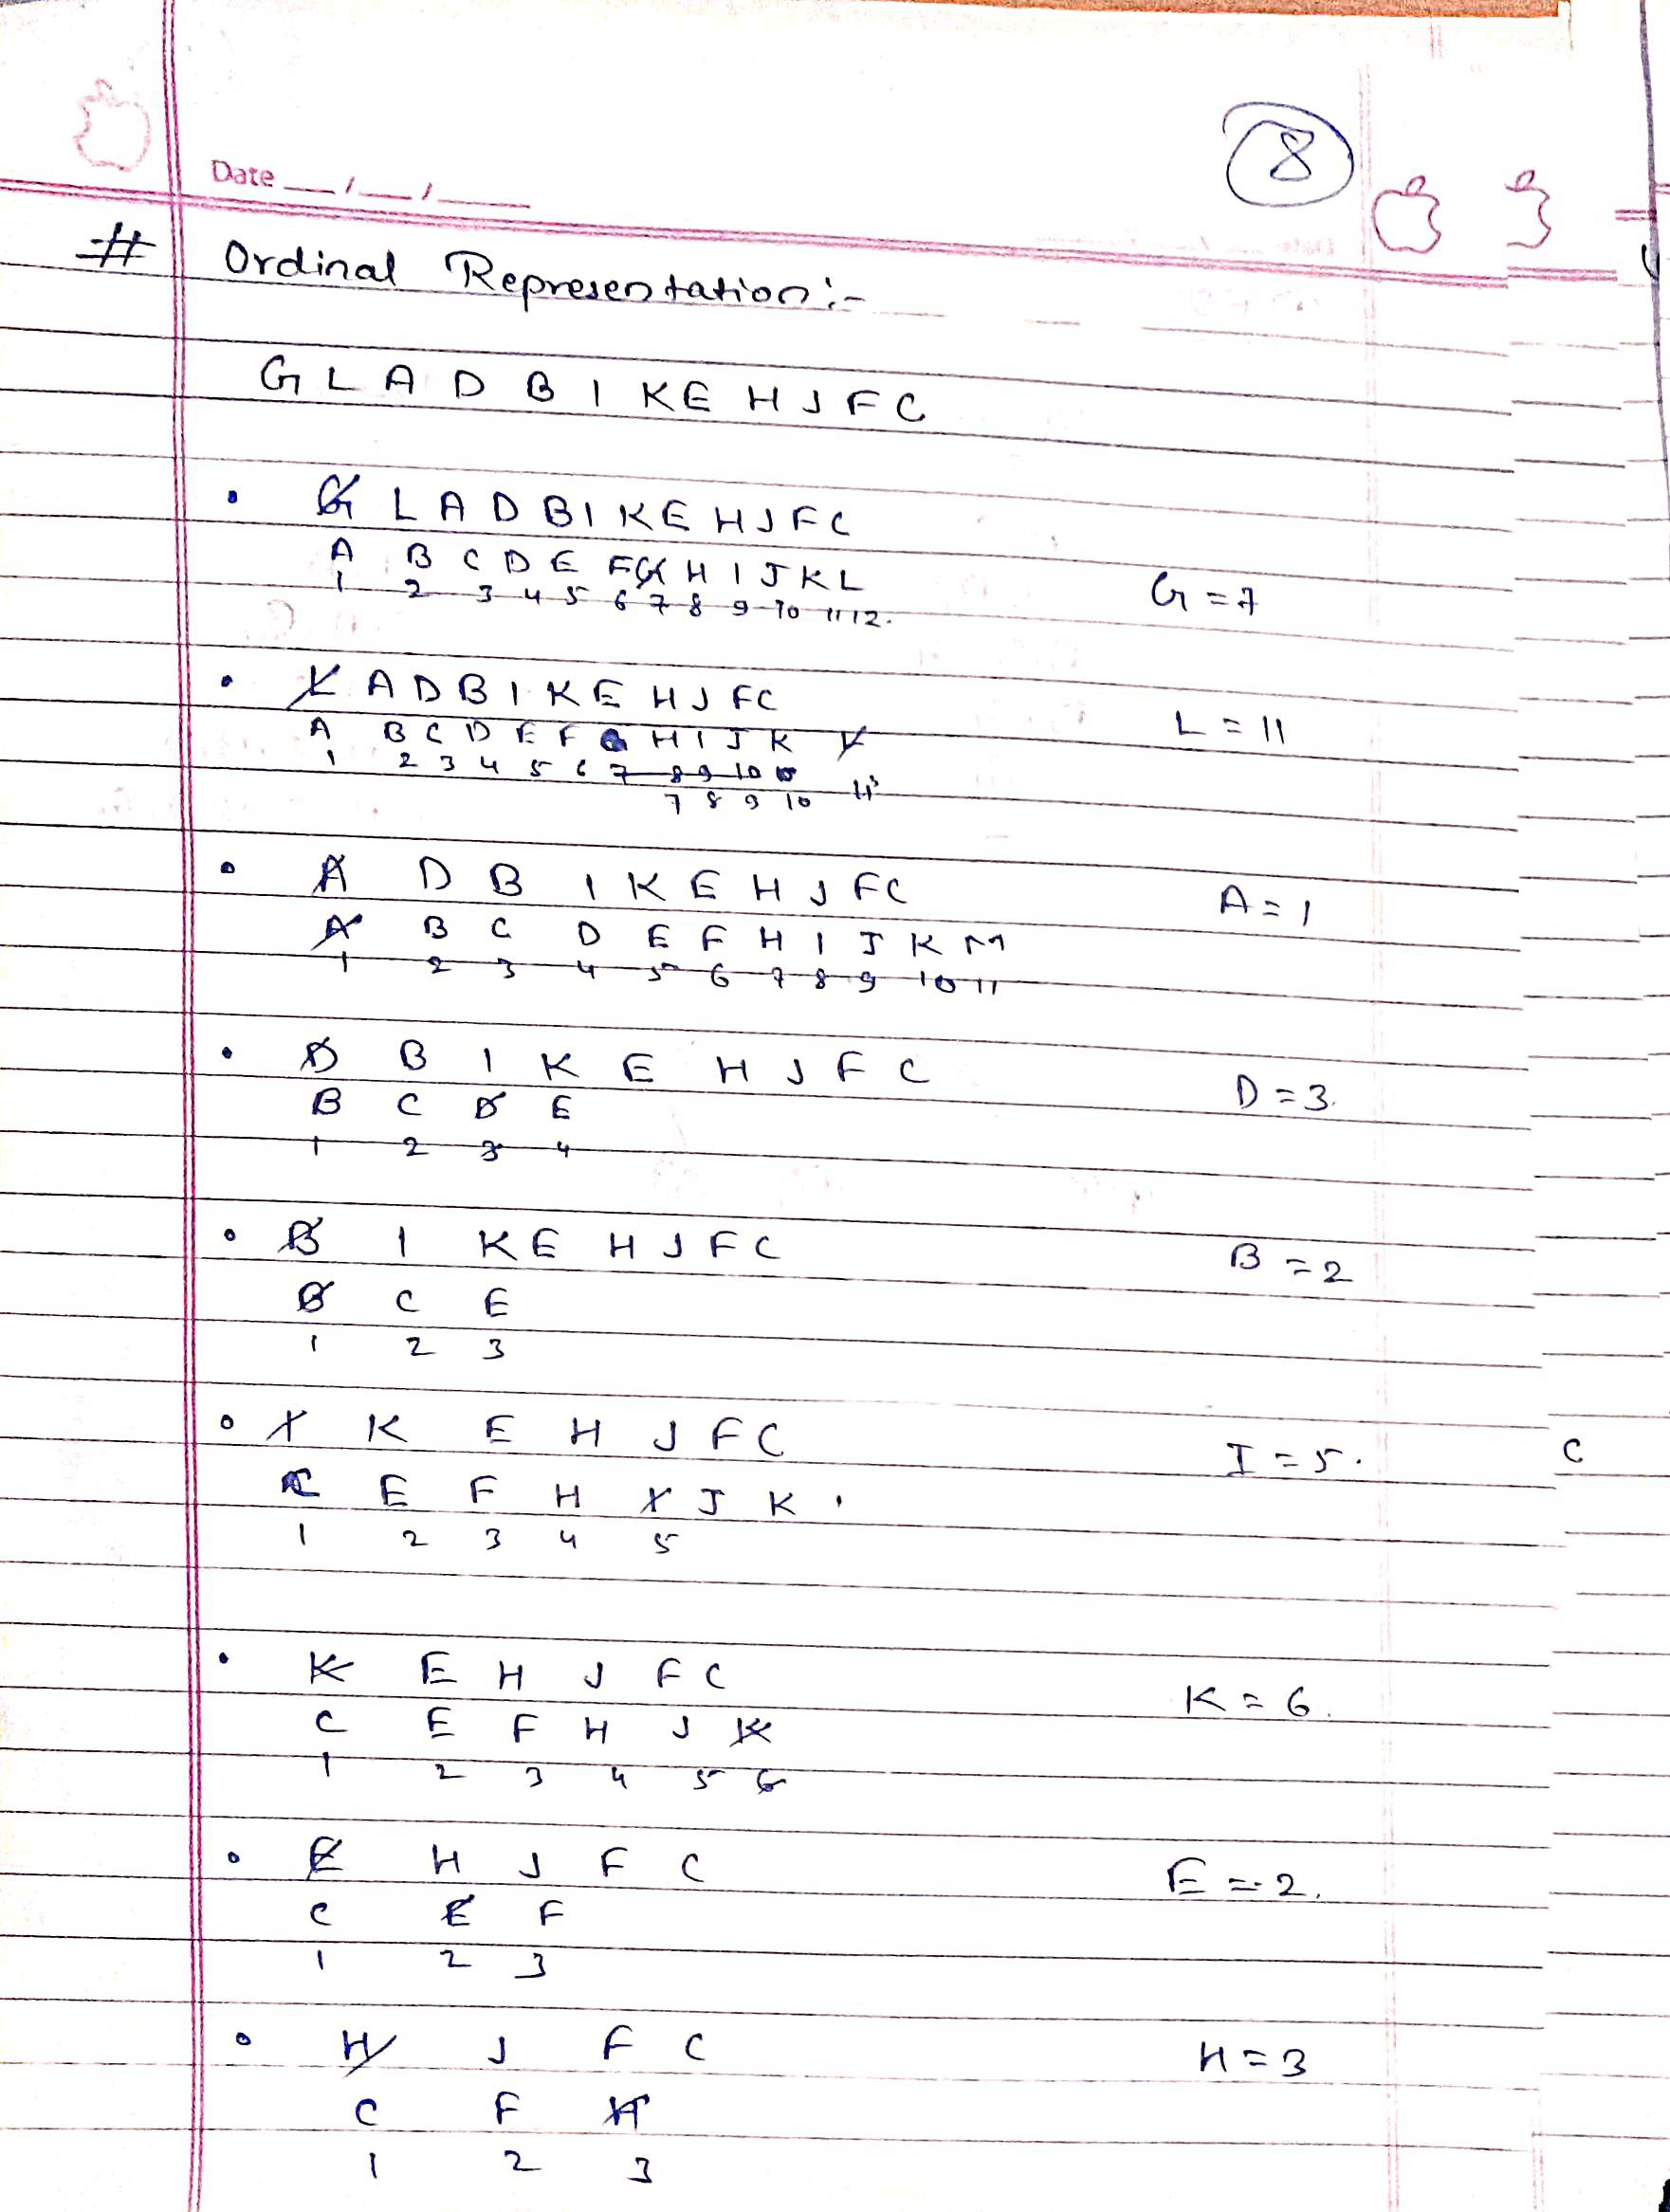 8
Date __/__/____
# Ordinal Representation :-
G L A D B I K E H J F C
• G L A D B I K E H J F C
A B C D E F G H I J K L
1 2 3 4 5 6 7 8 9 10 11 12. G = 7
• L A D B I K E H J F C
A B C D E F G H I J K L L = 11
1 2 3 4 5 6 7 8 9 10
7 8 9 10 11
• A D B I K E H J F C A = 1
A B C D E F H I J K M
1 2 3 4 5 6 7 8 9 10 11
• D B I K E H J F C
B C D E D = 3.
1 2 3 4
• B I K E H J F C B = 2
B C E
1 2 3
• I K E H J F C I = 5. C
C E F H I J K .
1 2 3 4 5
• K E H J F C
C E F H J K K = 6.
1 2 3 4 5 6
• E H J F C E = 2.
C E F
1 2 3
• H J F C H = 3
C F H
1 2 3